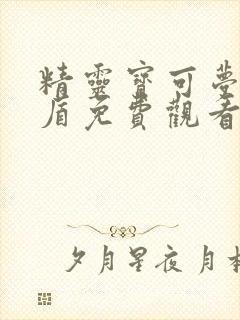 精靈寶可夢
盾免費觀看
夕月星夜 月